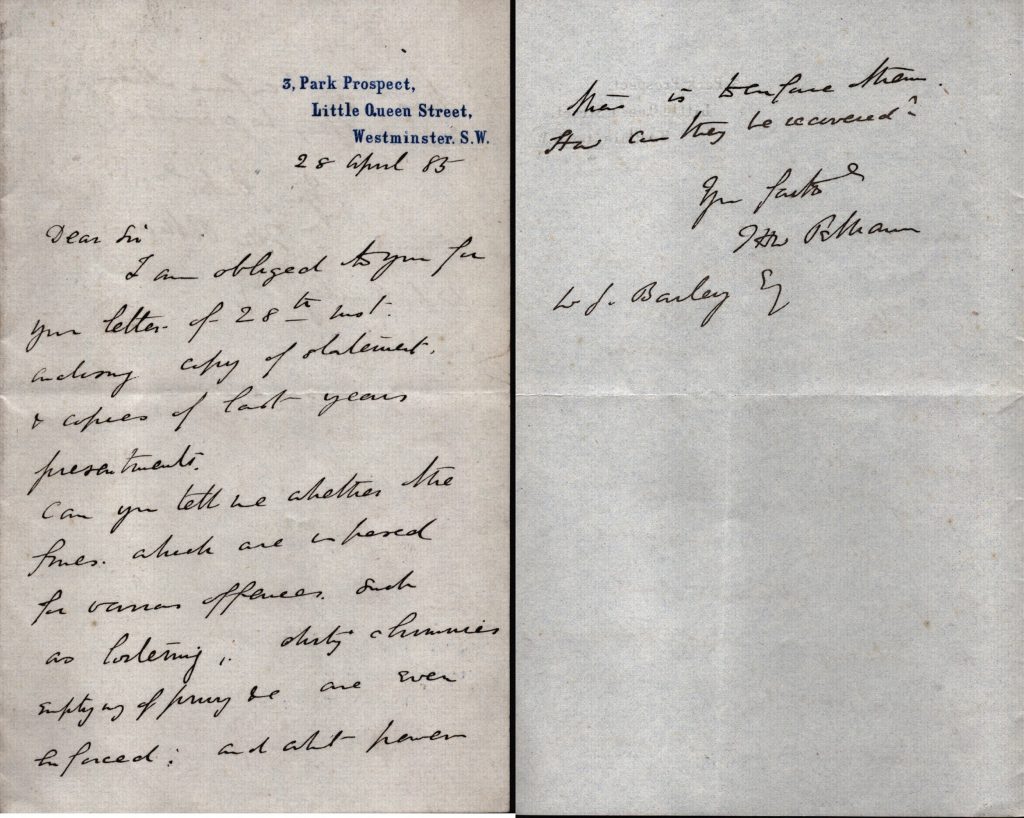 3, Park Prospect,
Little Queen Street,
Westminster. S.W.
28 April 85
Dear Sir
I am obliged to you for
your letter of 28th inst.
enclosing copy of statement.
& copies of last years
presentments.
Can you tell me whether the
fines. which are imposed
for various offences. such
as loitering, dirty chimnies
emptying of privy &c are ever
enforced: and what power
there is to enforce them.
How can they be recovered?
Yr
W J. Barley Esq